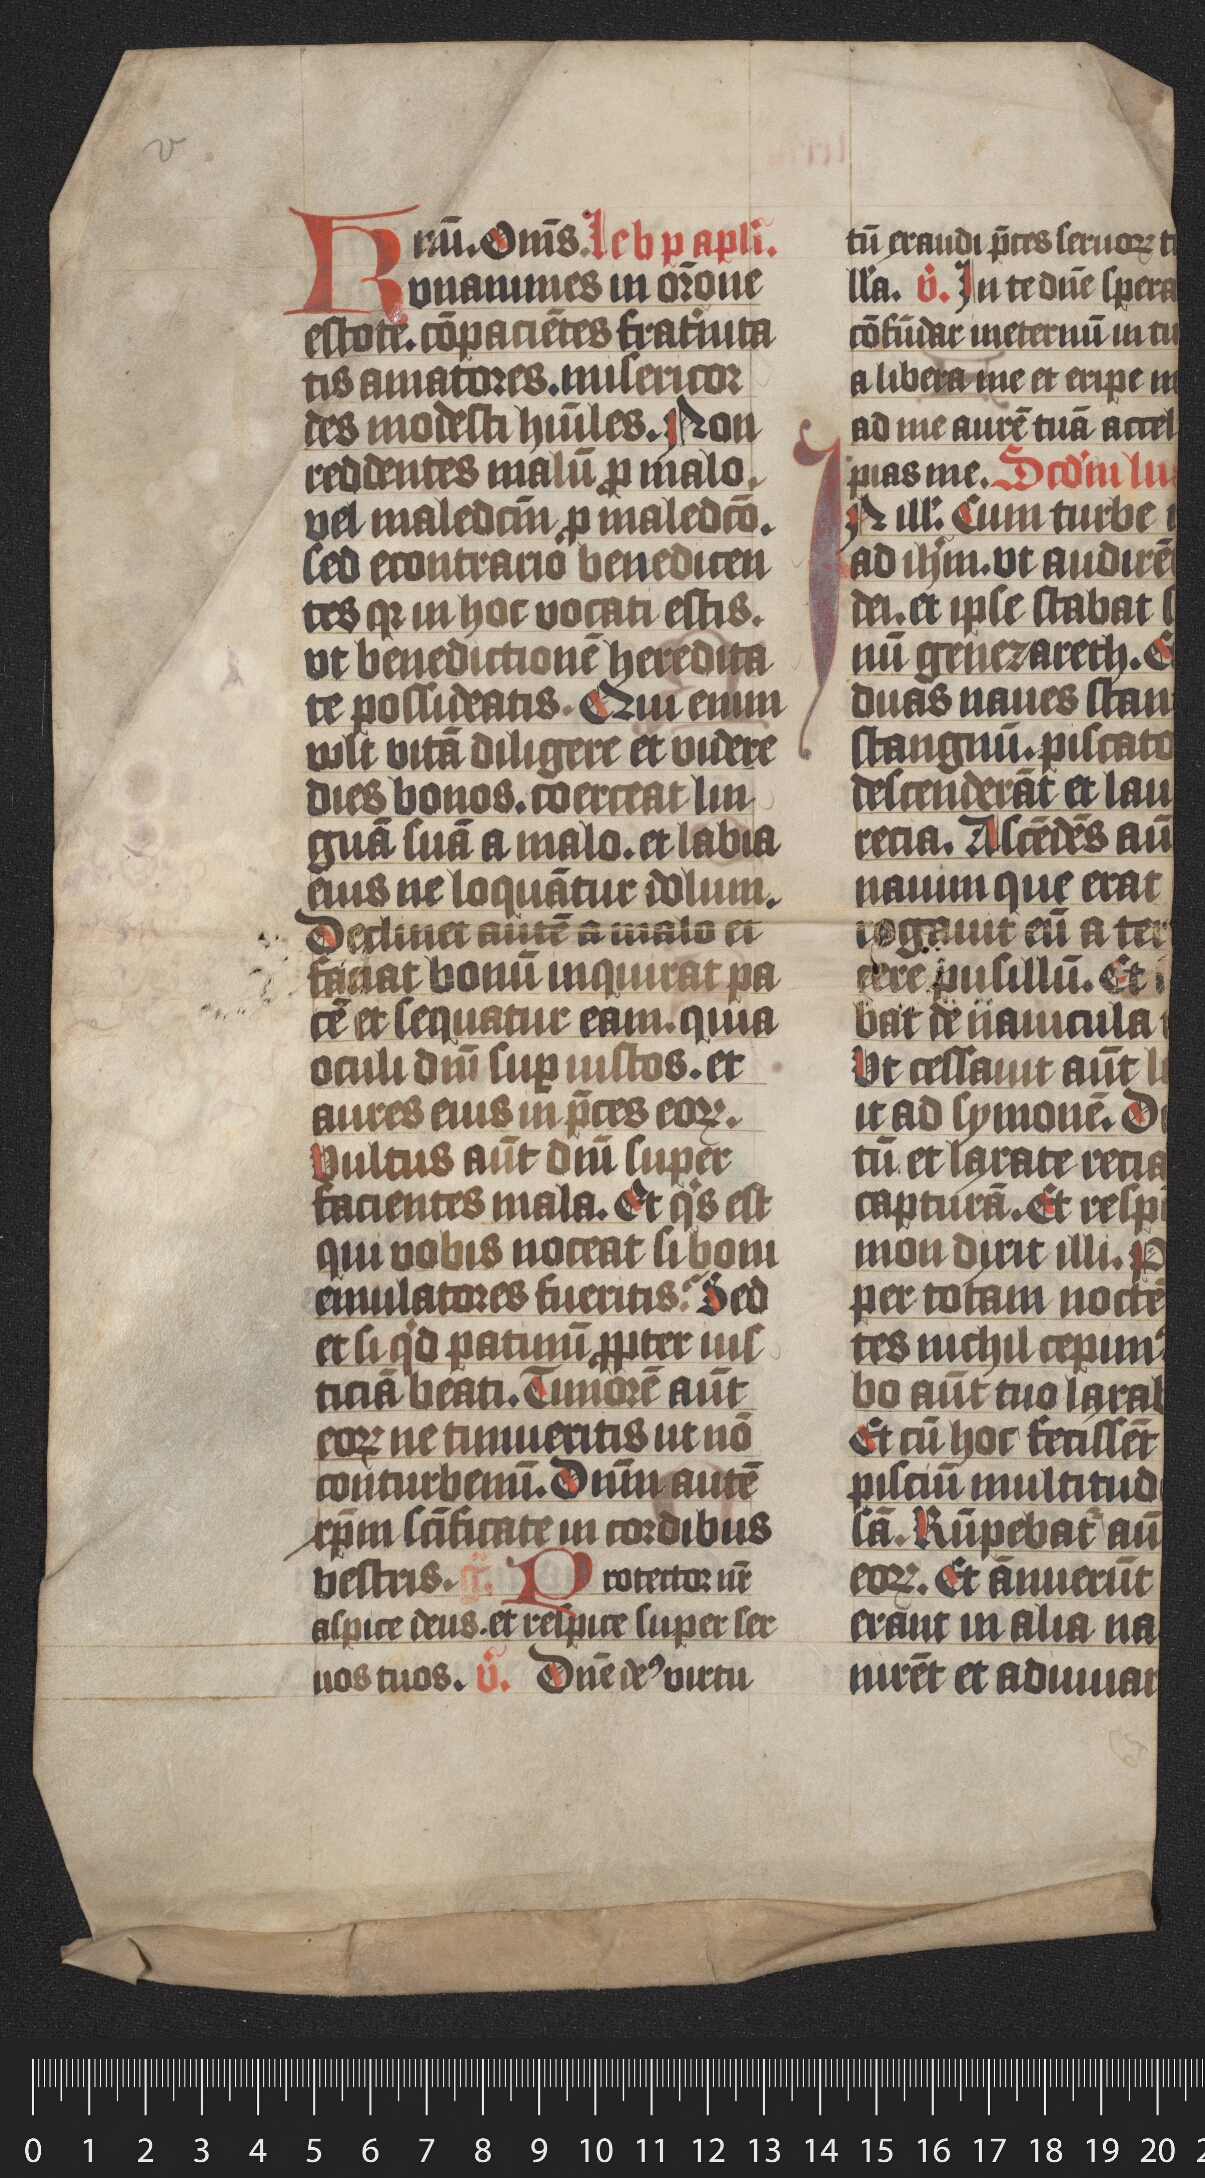 v
Rmī. Om̄s. Leb p apl̄i.
vnanimes in or̄one
estote. cōpaciētes frat'nita
tis amatores. misericor
des modesti hūiles. Non
reddentes malū ꝑ malo.
vel maledcīn ꝑ maledcō.
sed econtrario benedicen
tes qr in hoc vocati estis.
vt benedictionē heredita
te possideatis. Qui enim
vult vitā diligere et videre
dies bonos. coerceat lin
guā suā a malo. et labia
eius ne loquātur dolum.
Declinet autē a malo et
faciat bonū inquirat pa
cē et sequatur eam. quia
oculi dnī suꝑ iustos. et
aures eius in p̄ces eoꝝ.
Vultus aūt dnī super
facientes mala. Et q's est
qui vobis noceat si boni
emulatores fueritis? Sed
et si q'd patimī ꝓpter ius
ticiā beati. Timorē aūt
eoꝝ ne timueritis ut nō
conturbemī. Dnm̄ autē
xp̄m scīficate in cordibus
vestris. ḡ. Protector nr̄
aspice deus. et respice super ser
uos tuos. v̄. Dnē de⁹ virtu
tū exaudi p̄ces seruoꝝ t
ll'a. v̄. In te dnē spera
cōfūdar ineternū in tu
a libera me et eripe m
ad me aurē tuā accel
pias me. Scd'm lu
N ill'. Cum turbe i
ad ih'm. vt audirē
dei. et ipse stabat s
nū genezareth. E
duas naues stan
stangnū. piscato
descenderāt et lau
recia. Ascēdēs aū
nauim que erat
rogauit eū a ter
cere pusillū. Et
bat de nauicula
Vt cessauit aūt l
it ad symonē. D
tū et laxate recia
capturā. Et resp
mon dixit illi. P
per totam noctē
tes nichil cepim⁹
bo aūt tuo laxab
Et cū hoc fecissēt
pisciū multitud
sā. Rūpebat' aū
eoꝝ. Et ānuerūt
erant in alia na
nirēt et adiuuar
0 1 2 3 4 5 6 7 8 9 10 11 12 13 14 15 16 17 18 19 20 2